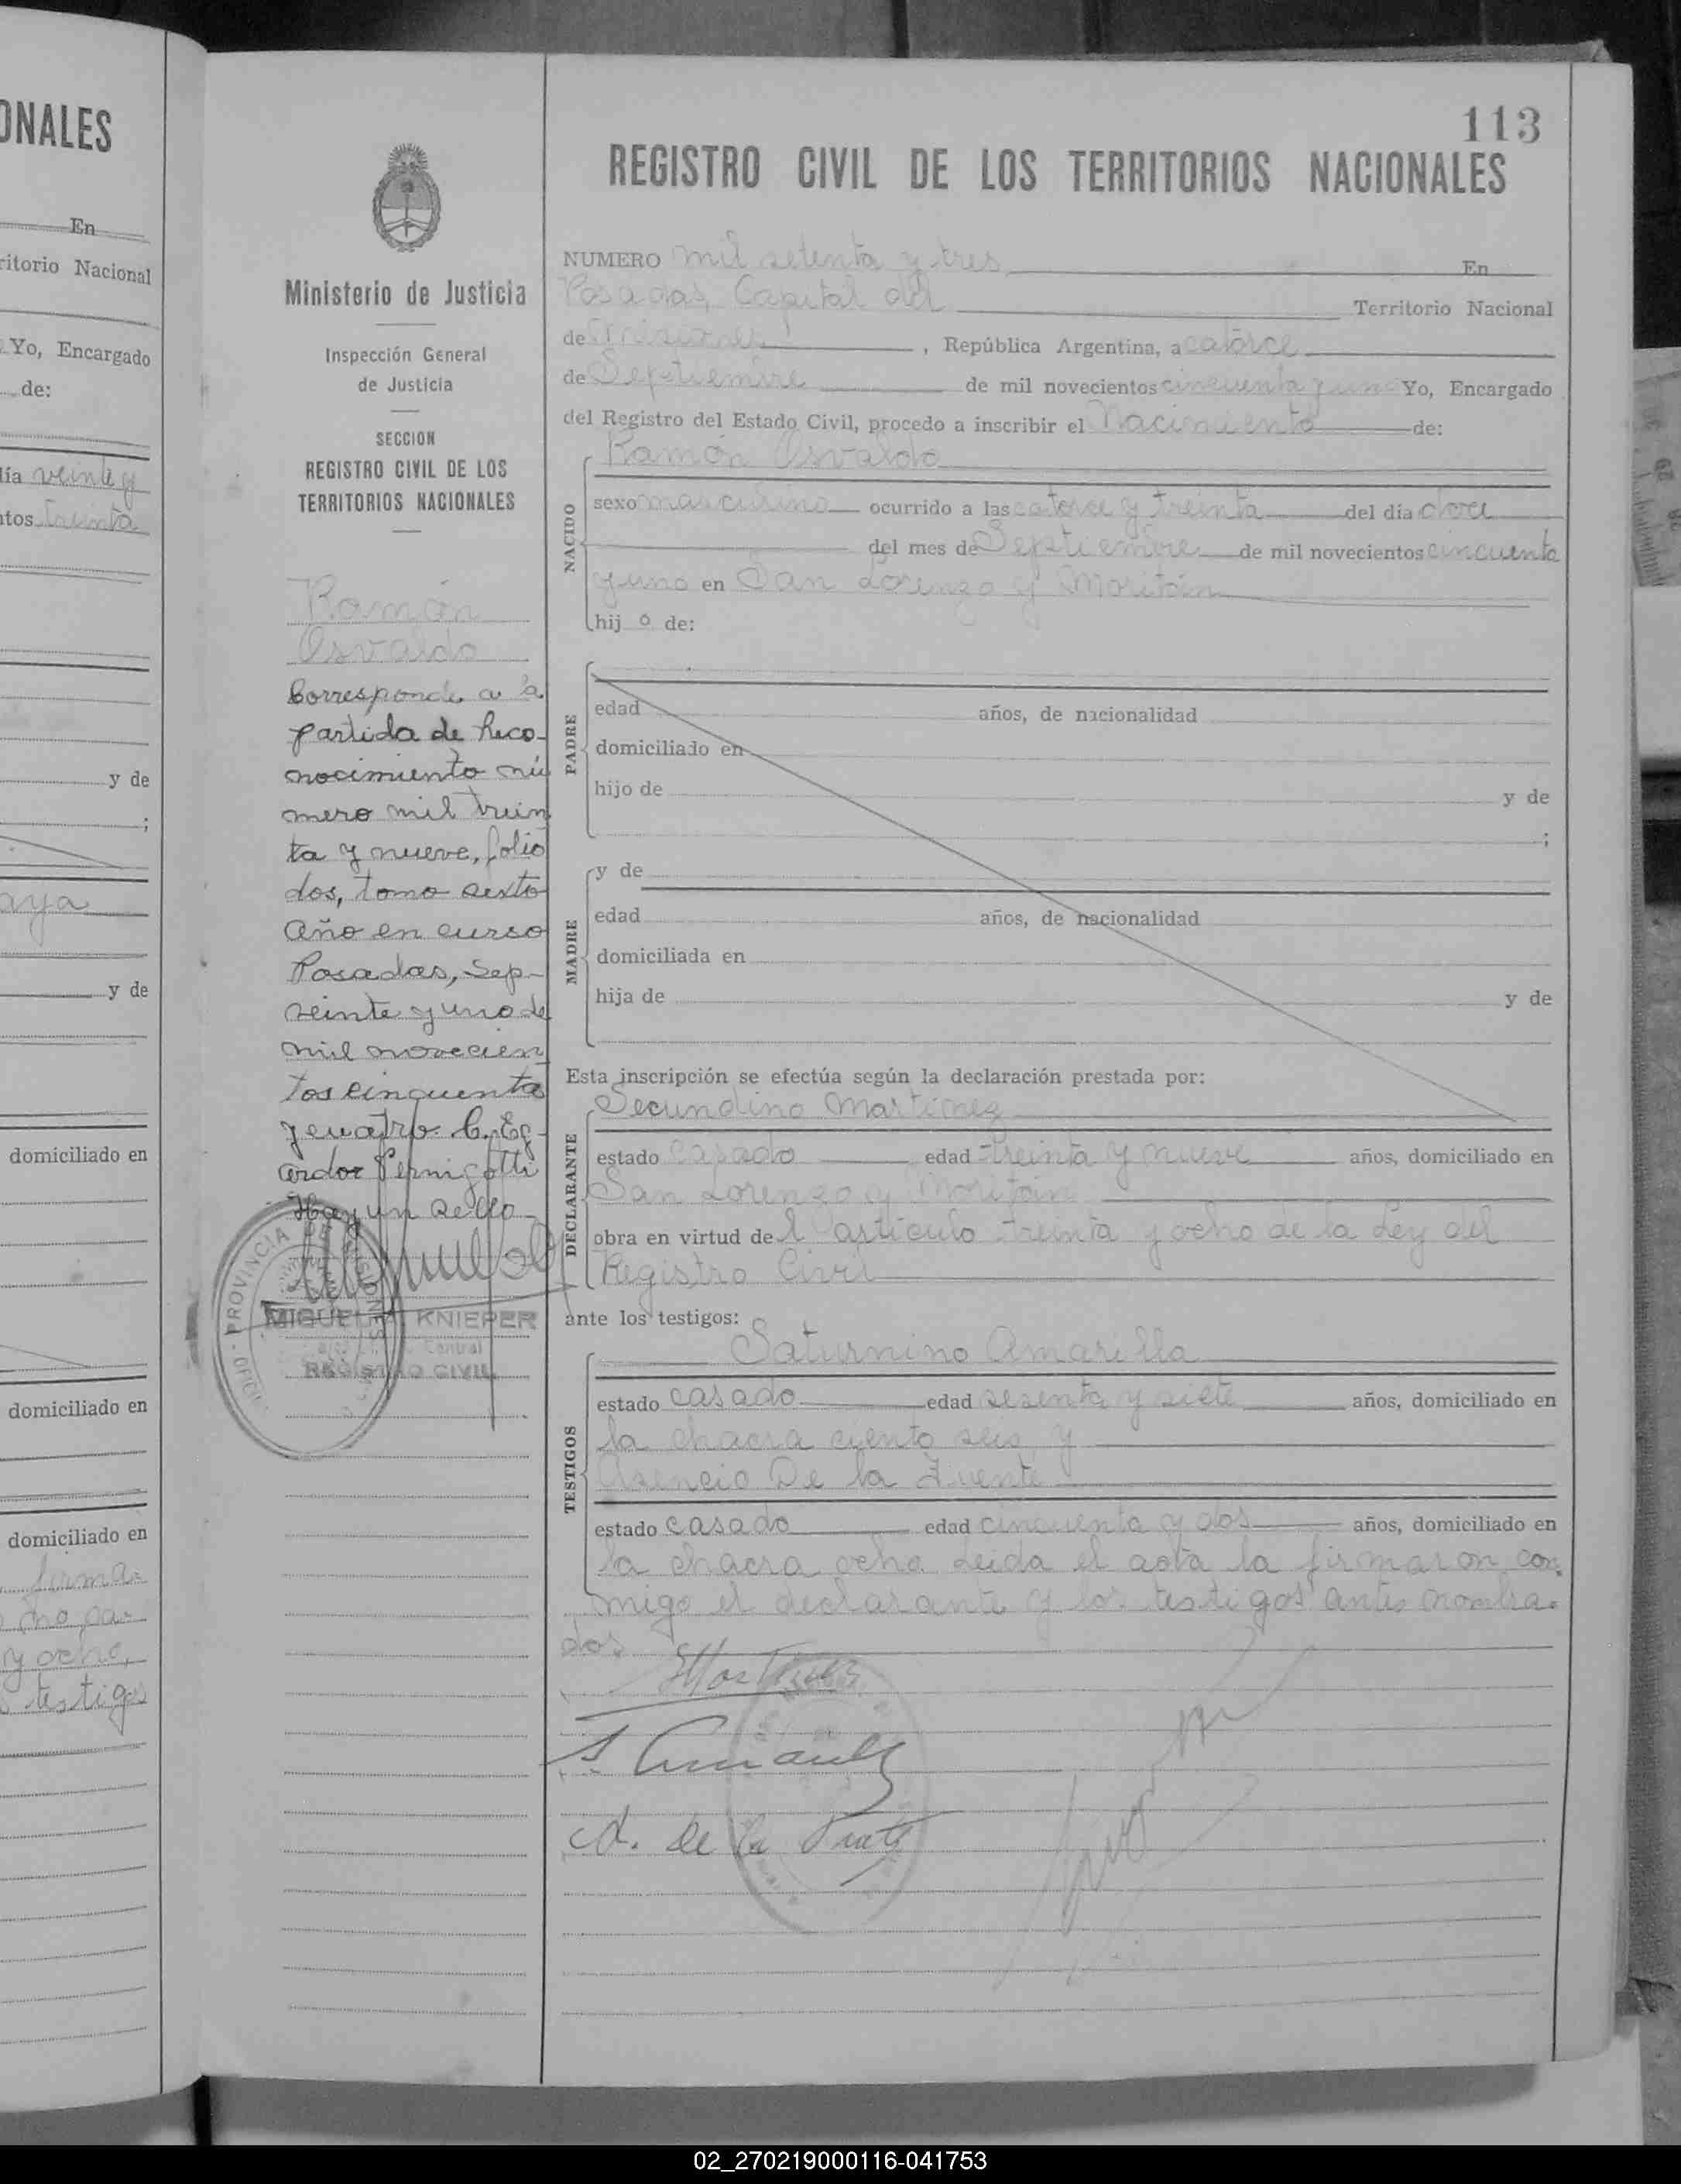 ONALES
En
ritorio Nacional
Yo, Encargado
de:
día veinte y
ntos treinta
y de
;
aya
y de
domiciliado en
domiciliado en
domiciliado en
firma-
y ocho,
testigos
Ministerio de Justicia
Inspección General
de Justicia
SECCION
REGISTRO CIVIL DE LOS
TERRITORIOS NACIONALES
Ramón
Osvaldo
Corresponde a la
partida de Reco-
nocimiento nú
mero mil trein
ta y nueve, folio
dos, tomo sexto
Año en curso
Posadas, Sep-
veinte y uno de
mil novecien
tos cincuenta
y cuatro. C. Eq-
ardor Pernigotti
Hay un sello
PROVINCIA
MISIONES
MIGUEL A. KNIEPER
Central
REGISTRO CIVIL
113
REGISTRO CIVIL DE LOS TERRITORIOS NACIONALES
NUMERO mil setenta y tres En
Posadas, Capital del Territorio Nacional
de Misiones, República Argentina, a catorce
de Septiembre de mil novecientos cincuenta y uno Yo, Encargado
del Registro del Estado Civil, procedo a inscribir el Nacimiento de:
Ramón Osvaldo
NACIDO
sexo masculino ocurrido a las catorce y treinta del día doce
del mes de Septiembre de mil novecientos cincuenta
y uno en San Lorenzo y Moritán
hij o de:
PADRE
edad años, de nacionalidad
domiciliado en
hijo de y de
;
MADRE
y de
edad años, de nacionalidad
domiciliada en
hija de y de
Esta inscripción se efectúa según la declaración prestada por:
DECLARANTE
Secundino Martinez
estado casado edad treinta y nueve años, domiciliado en
San Lorenzo y Moritán
obra en virtud de l articulo treinta y ocho de la Ley del
Registro Civil
ante los testigos:
TESTIGOS
Saturnino Amarilla
estado casado edad sesenta y siete años, domiciliado en
la chacra ciento seis y
Asencio De la Fuente
estado casado edad cincuenta y dos años, domiciliado en
la chacra ocho. Leida el acta la firmaron con-
migo el declarante y los testigos antes nombra-
dos.
SMartinez
S. Amarilla
A. de la Fuente
02_270219000116-041753